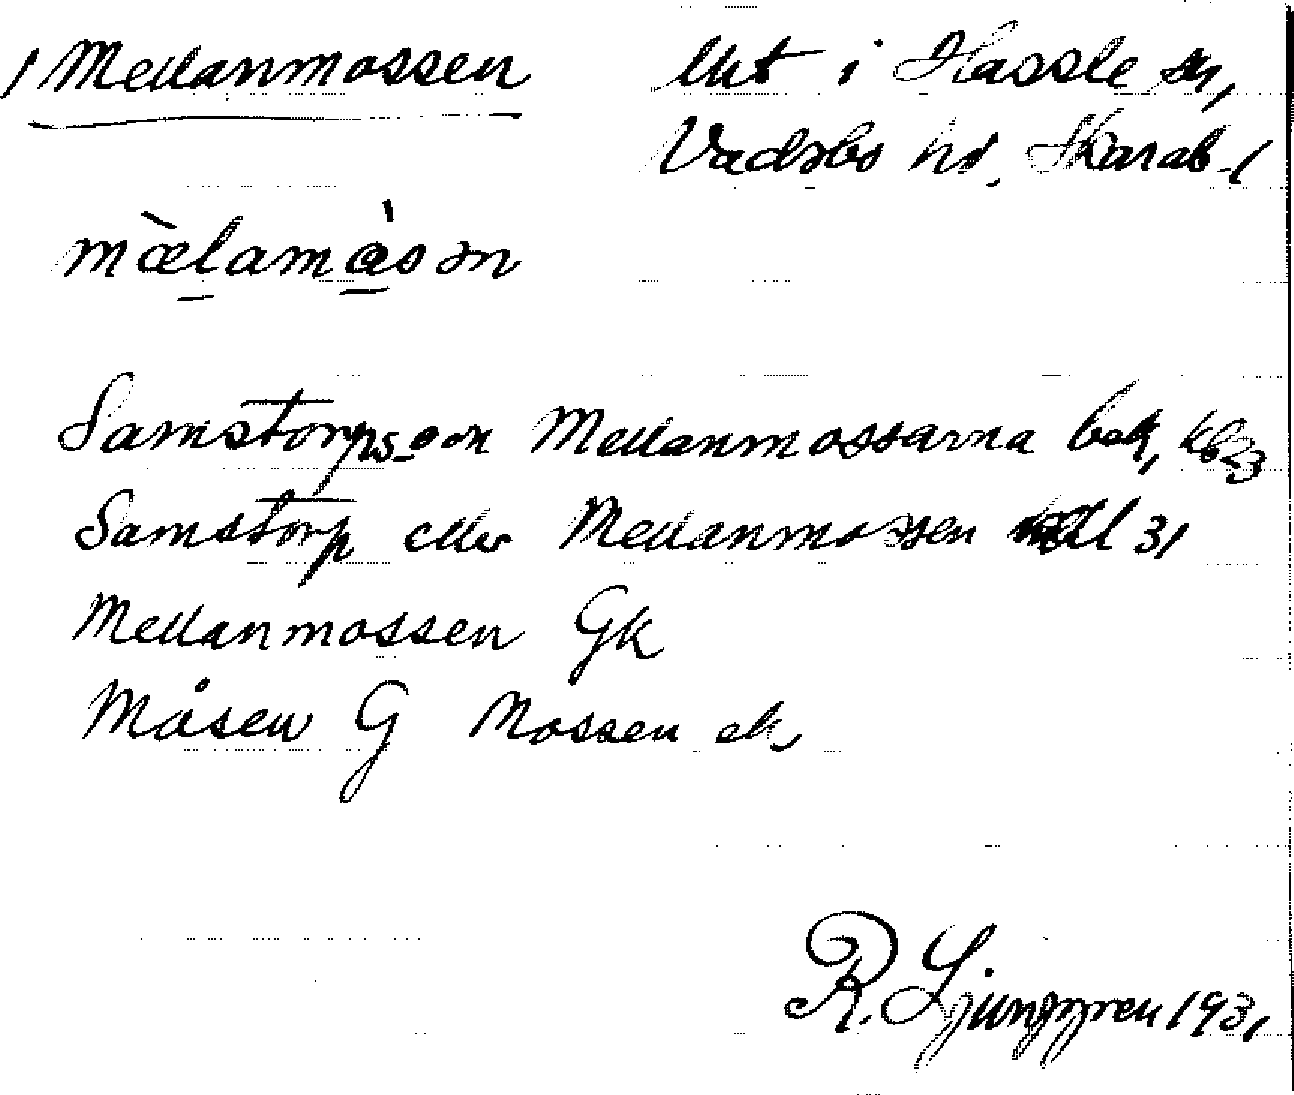 / Mellanmossen lht i Hassle sn,
Vadsbo hd. Skarab. l
mæ̀lamå̀sən
Samstorps- och Mellanmossarna bek,
Samstorp eller Mellanmossen 31
Mellanmossen Gk
Måsen G Mossen ek,
R. Ljunggren 1931